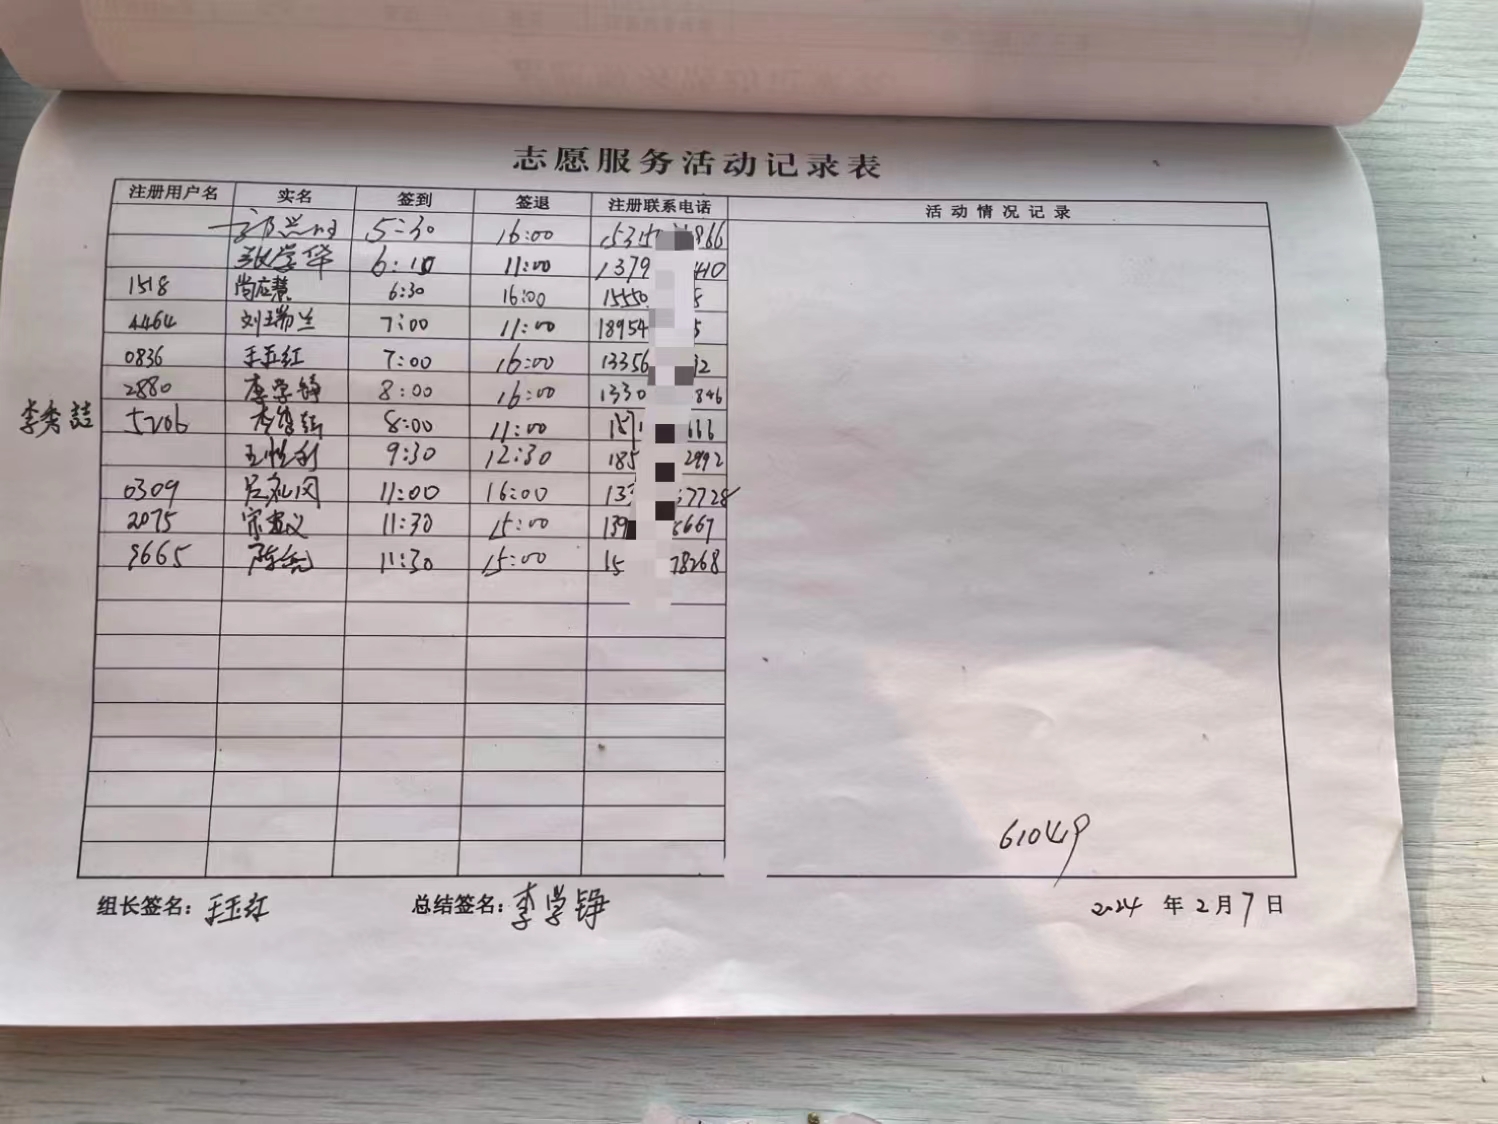 志愿服务活动记录表
注册用户名 实名 签到 签退 注册联系电话 活动情况记录
5:30 16:00 866
张学华 6:10 11:00 1379 440
1518 尚应慧 6:30 16:00 15550 8
4464 刘瑞兰 7:00 11:00 18954 5
0836 王玉红 7:00 16:00 13356 92
2880 李学铮 8:00 16:00 1330 846
李秀喆 5206 8:00 11:00 157 666
王胜利 9:30 12:30 185 2992
0309 吕礼冈 11:00 16:00 133 7728
2075 宋忠义 11:30 15:00 139 8667
9665 11:30 15:00 15 78268
61049
组长签名: 王玉红 总结签名: 李学铮 2024 年 2 月 7 日